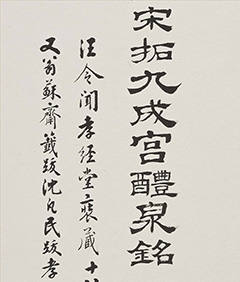 宋拓九成宮醴泉銘
汪令聞孝經堂褱藏十
又翁蘇齋籤跋沈凡民跋孝